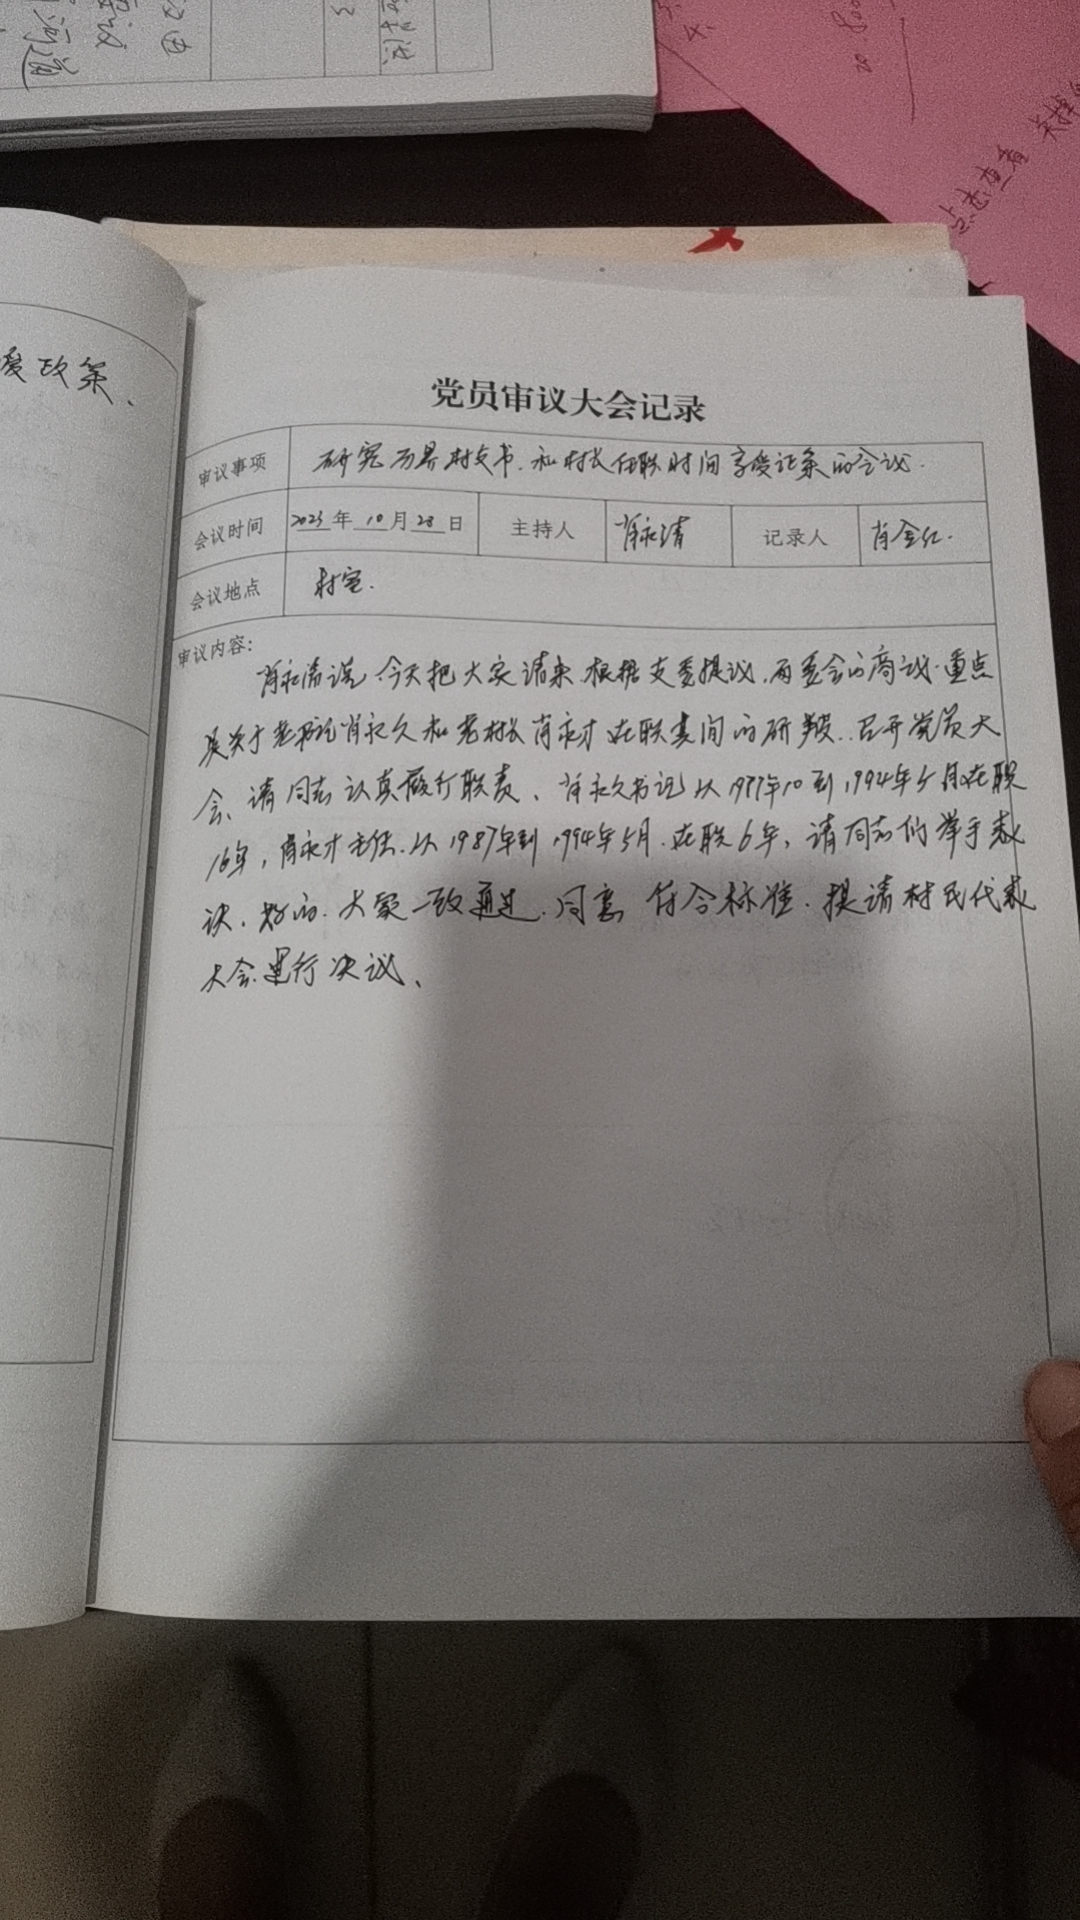 爱政策、
点击查看
党员审议大会记录
审议事项 研究历界村支书、和村长任职时间享受政策的会议.
会议时间 2023年10月28日 主持人 肖永清 记录人 肖金红.
会议地点 村室.
审议内容:
肖永清说:今天把大家请来.根据支委提议.两委会的商议.重点
是关于老书记肖永久和老村长肖永才在职其间的研报..召开党员大
会、请同志认真履行职责、肖永久书记从1977年10到1994年5月在职
16年,肖永才主任.从1987年到1994年5月.在职6年,请同志们举手表
决、好的.大家一致通过.同意符合标准.提请村民代表
大会进行决议、